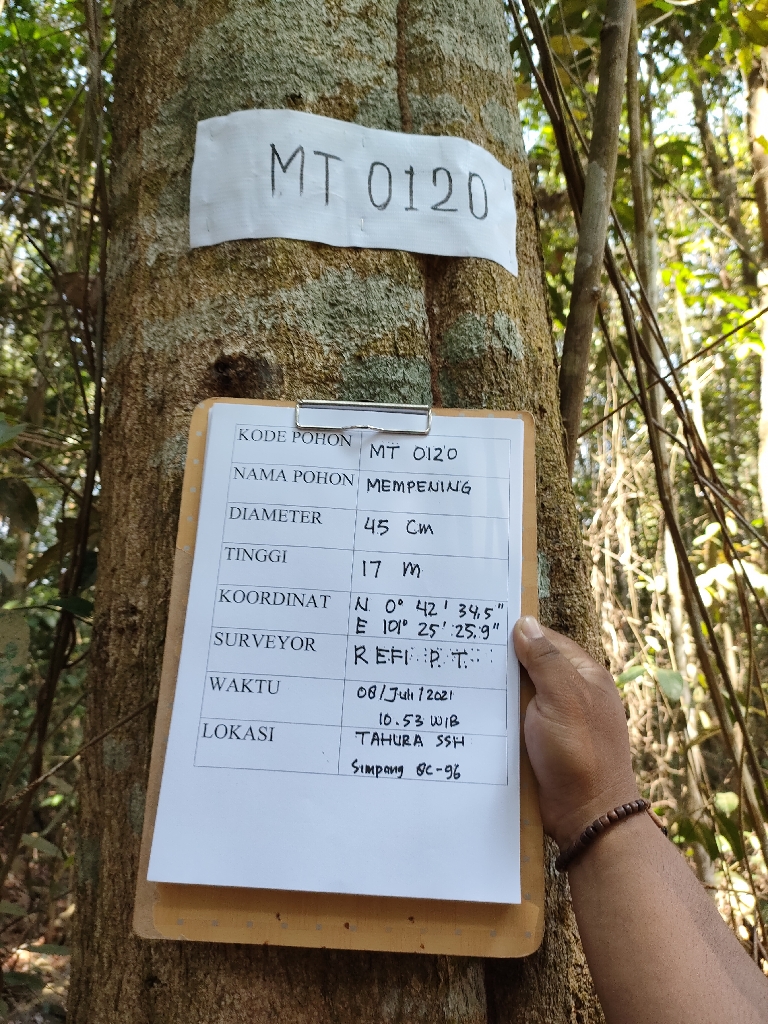 MT 0120
KODE POHON MT 0120
NAMA POHON MEMPENING
DIAMETER 45 Cm
TINGGI 17 m
KOORDINAT N 0° 42' 34,5"
E 101° 25' 25.9"
SURVEYOR REFI P.T.
WAKTU 08/Juli/2021
10.53 WIB
LOKASI TAHURA SSH
Simpang